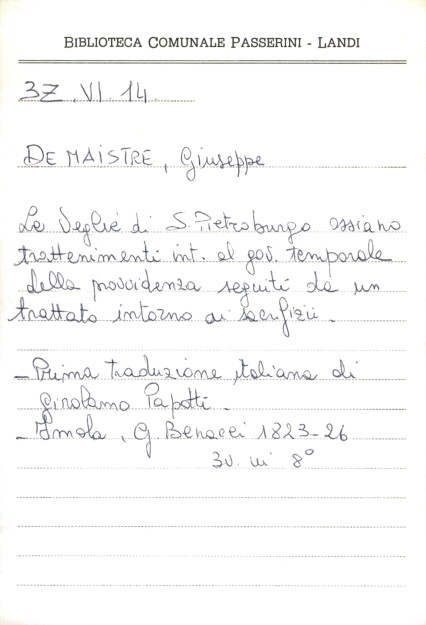 BIBLIOTECA COMUNALE PASSERINI - LANDI
3Z.VI.14.
DE MAISTRE, Giuseppe
Le Veglie di S. Pietroburgo ossiano
trattenimenti int. al gov. temporale
della provvidenza seguiti da un
trattato intorno ai sacrifizii.
- Prima traduzione italiana di
Girolamo Papotti.
- Imola, G. Benacci 1823-26
3v. in 8°